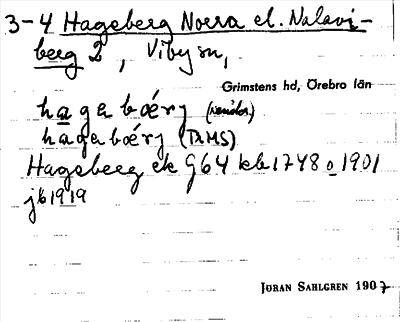 3-4 Hageberg Norra el. Nalavi-
berg 2, Viby sn,
Grimstens hd, Örebro län
hagebǿrj
hagebǿrj (IRMS)
Hagsberg ek G64 kb 1748 o 1901
jb 1919
JÖRAN SAHLGREN 1907